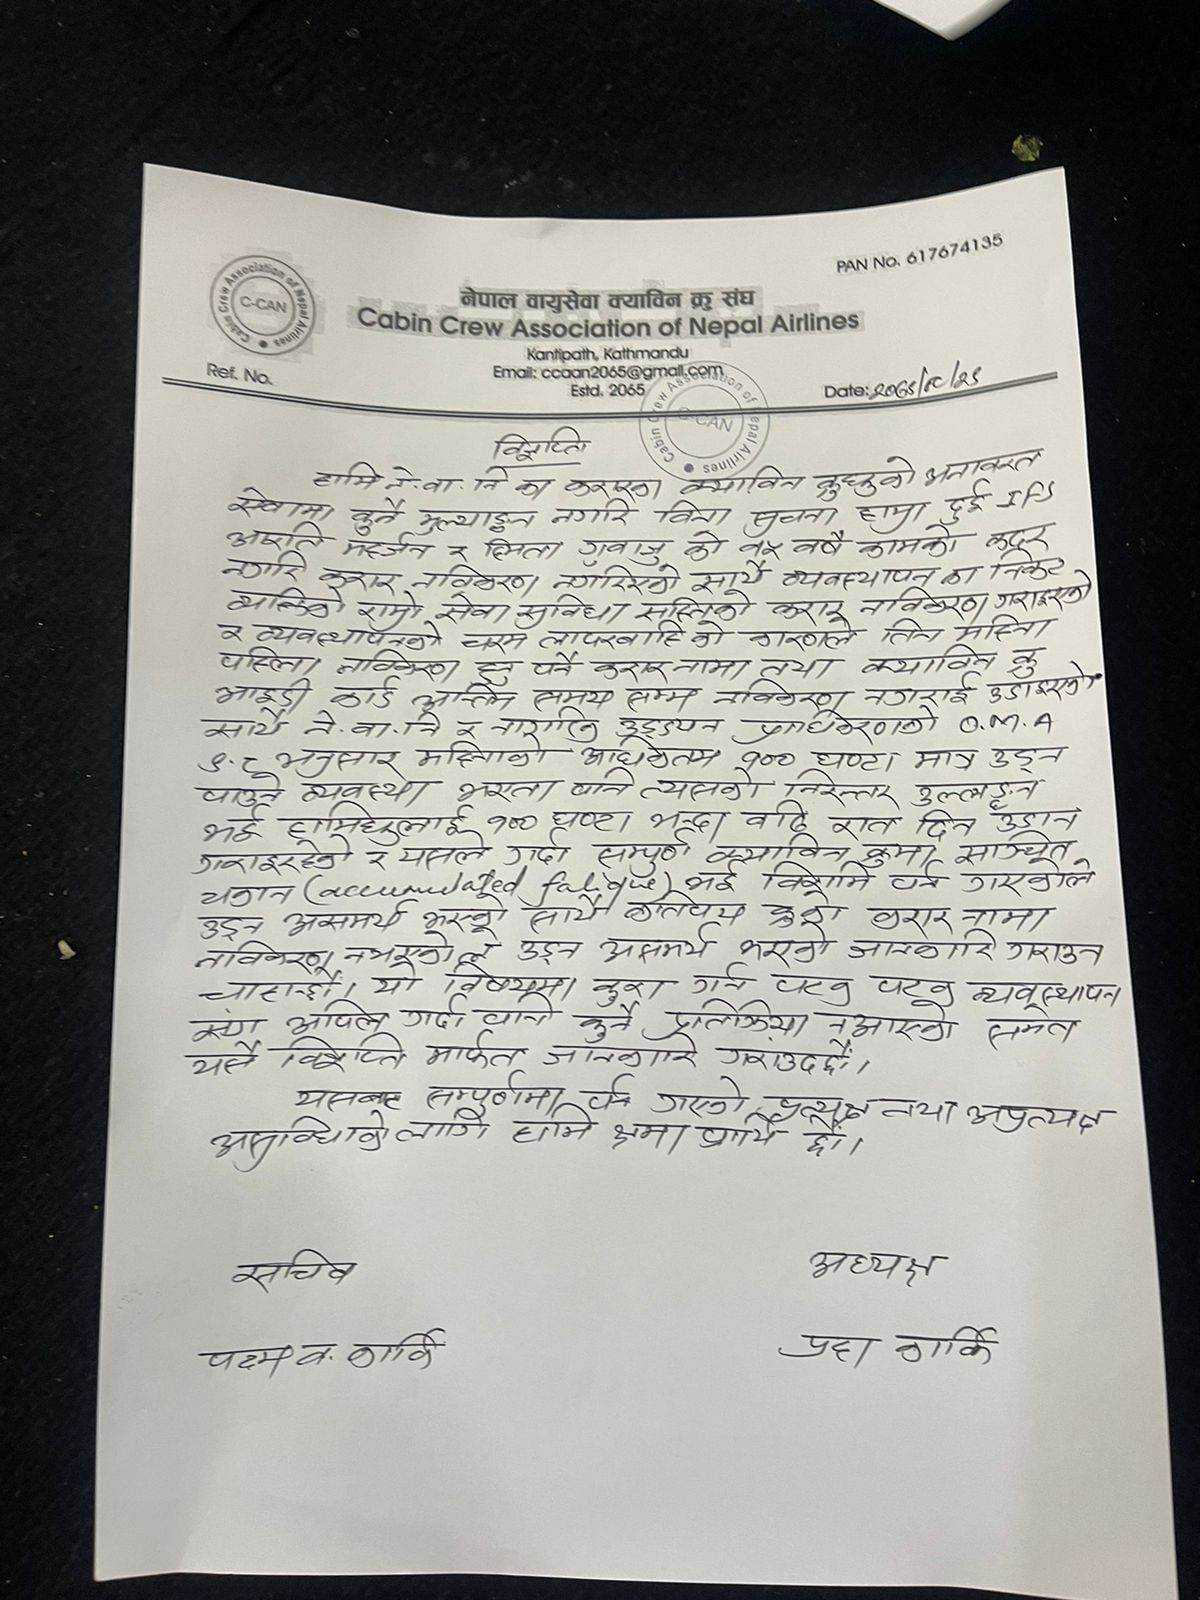 PAN No. 617674135
Cabin Crew Association of Nepal Airlines
C-CAN
नेपाल वायुसेवा क्याविन क्रु संघ
Cabin Crew Association of Nepal Airlines
Kantipath, Kathmandu
Email: ccaan2065@gmail.com
Estd. 2065
Ref. No.
Date:
Cabin Crew Association of Nepal Airlines
C-CAN
विज्ञप्ति
हामि ने.वा.नि का करारका क्याविन क्रुहरुको अनावरत
सेवामा कुनै मुल्याङ्कन नगरि विना सुचना हाम्रा दुई IFS
महर्जन र स्मिता गुवाजु को वर्षे कामको कदर
नगरि करार नविकरण नगरिएको साथै व्यवस्थापन का निकट
व्यक्तिको राम्रो सेवा सुविधा सहितको करार नविकरण गराइएको
र व्यवस्थापनको चरम लापरवाहिको कारणले तिन महिना
पहिला नविकरण हुनु पर्ने करारनामा तथा क्याविन क्रु
आइडी कार्ड अन्तिम समय सम्म नविकरण नगराई उडाइएको
साथै ने.वा.नि र नागरिक उड्डयन प्राधिकरणको O.M.A
अनुसार महिनाको अधिकतम १०० घण्टा मात्र उड्न
पाउने व्यवस्था भएता पनि त्यसको निरन्तर उल्लङ्घन
भई हामिहरुलाई १०० घण्टा भन्दा वढि रात दिन उडान
गराइरहेको र यसले गर्दा सम्पुर्ण क्याविन क्रुमा सञ्चित
थकान (accumulated fatigue) भई विरामि पर्न गएकोले
उड्न असमर्थ भएको साथै कतिपय क्रुको करार नामा
नविकरण नभएकोले उड्न असमर्थ भएको जानकारि गराउन
चाहन्छौ। यो विषयमा कुरा गर्न पटक पटक व्यवस्थापन
संग अपिल गर्दा पनि कुनै प्रतिक्रिया नआएको समेत
यसै विज्ञप्ति मार्फत जानकारि गराउदछौं।
सम्पुर्णमा पर्न गएको प्रत्यक्ष तथा अप्रत्यक्ष
असुविधाको लागि हामि क्षमा प्रार्थि छौं।
सचिव
अध्यक्ष
पदम व. कार्कि
कार्कि